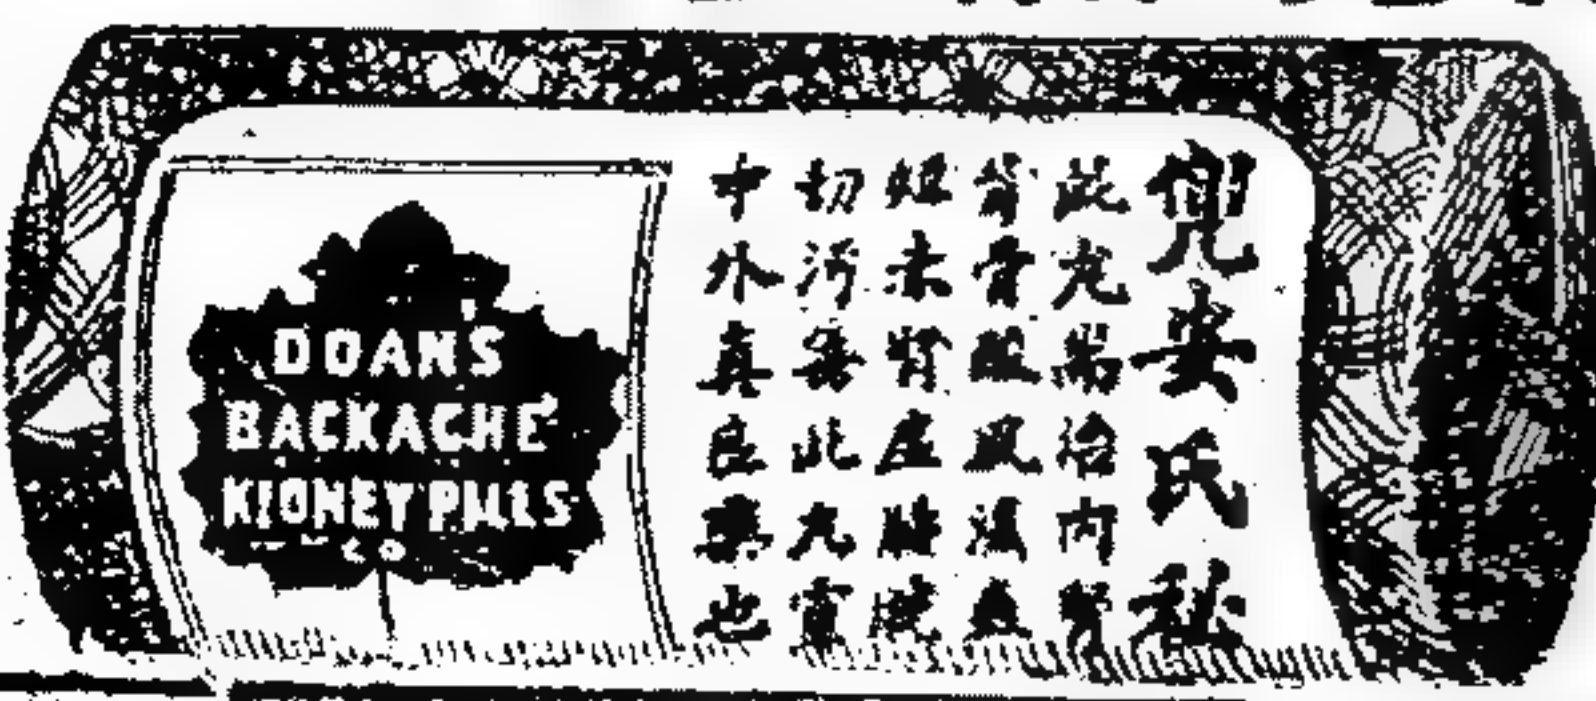 DOAN'S
BACKACHE
KIDNEY PILLS
CO
兜安氏秘
此丸耑治內腎
背骨酸風濕血
赤腎
切污毒此丸實
中外真良藥也